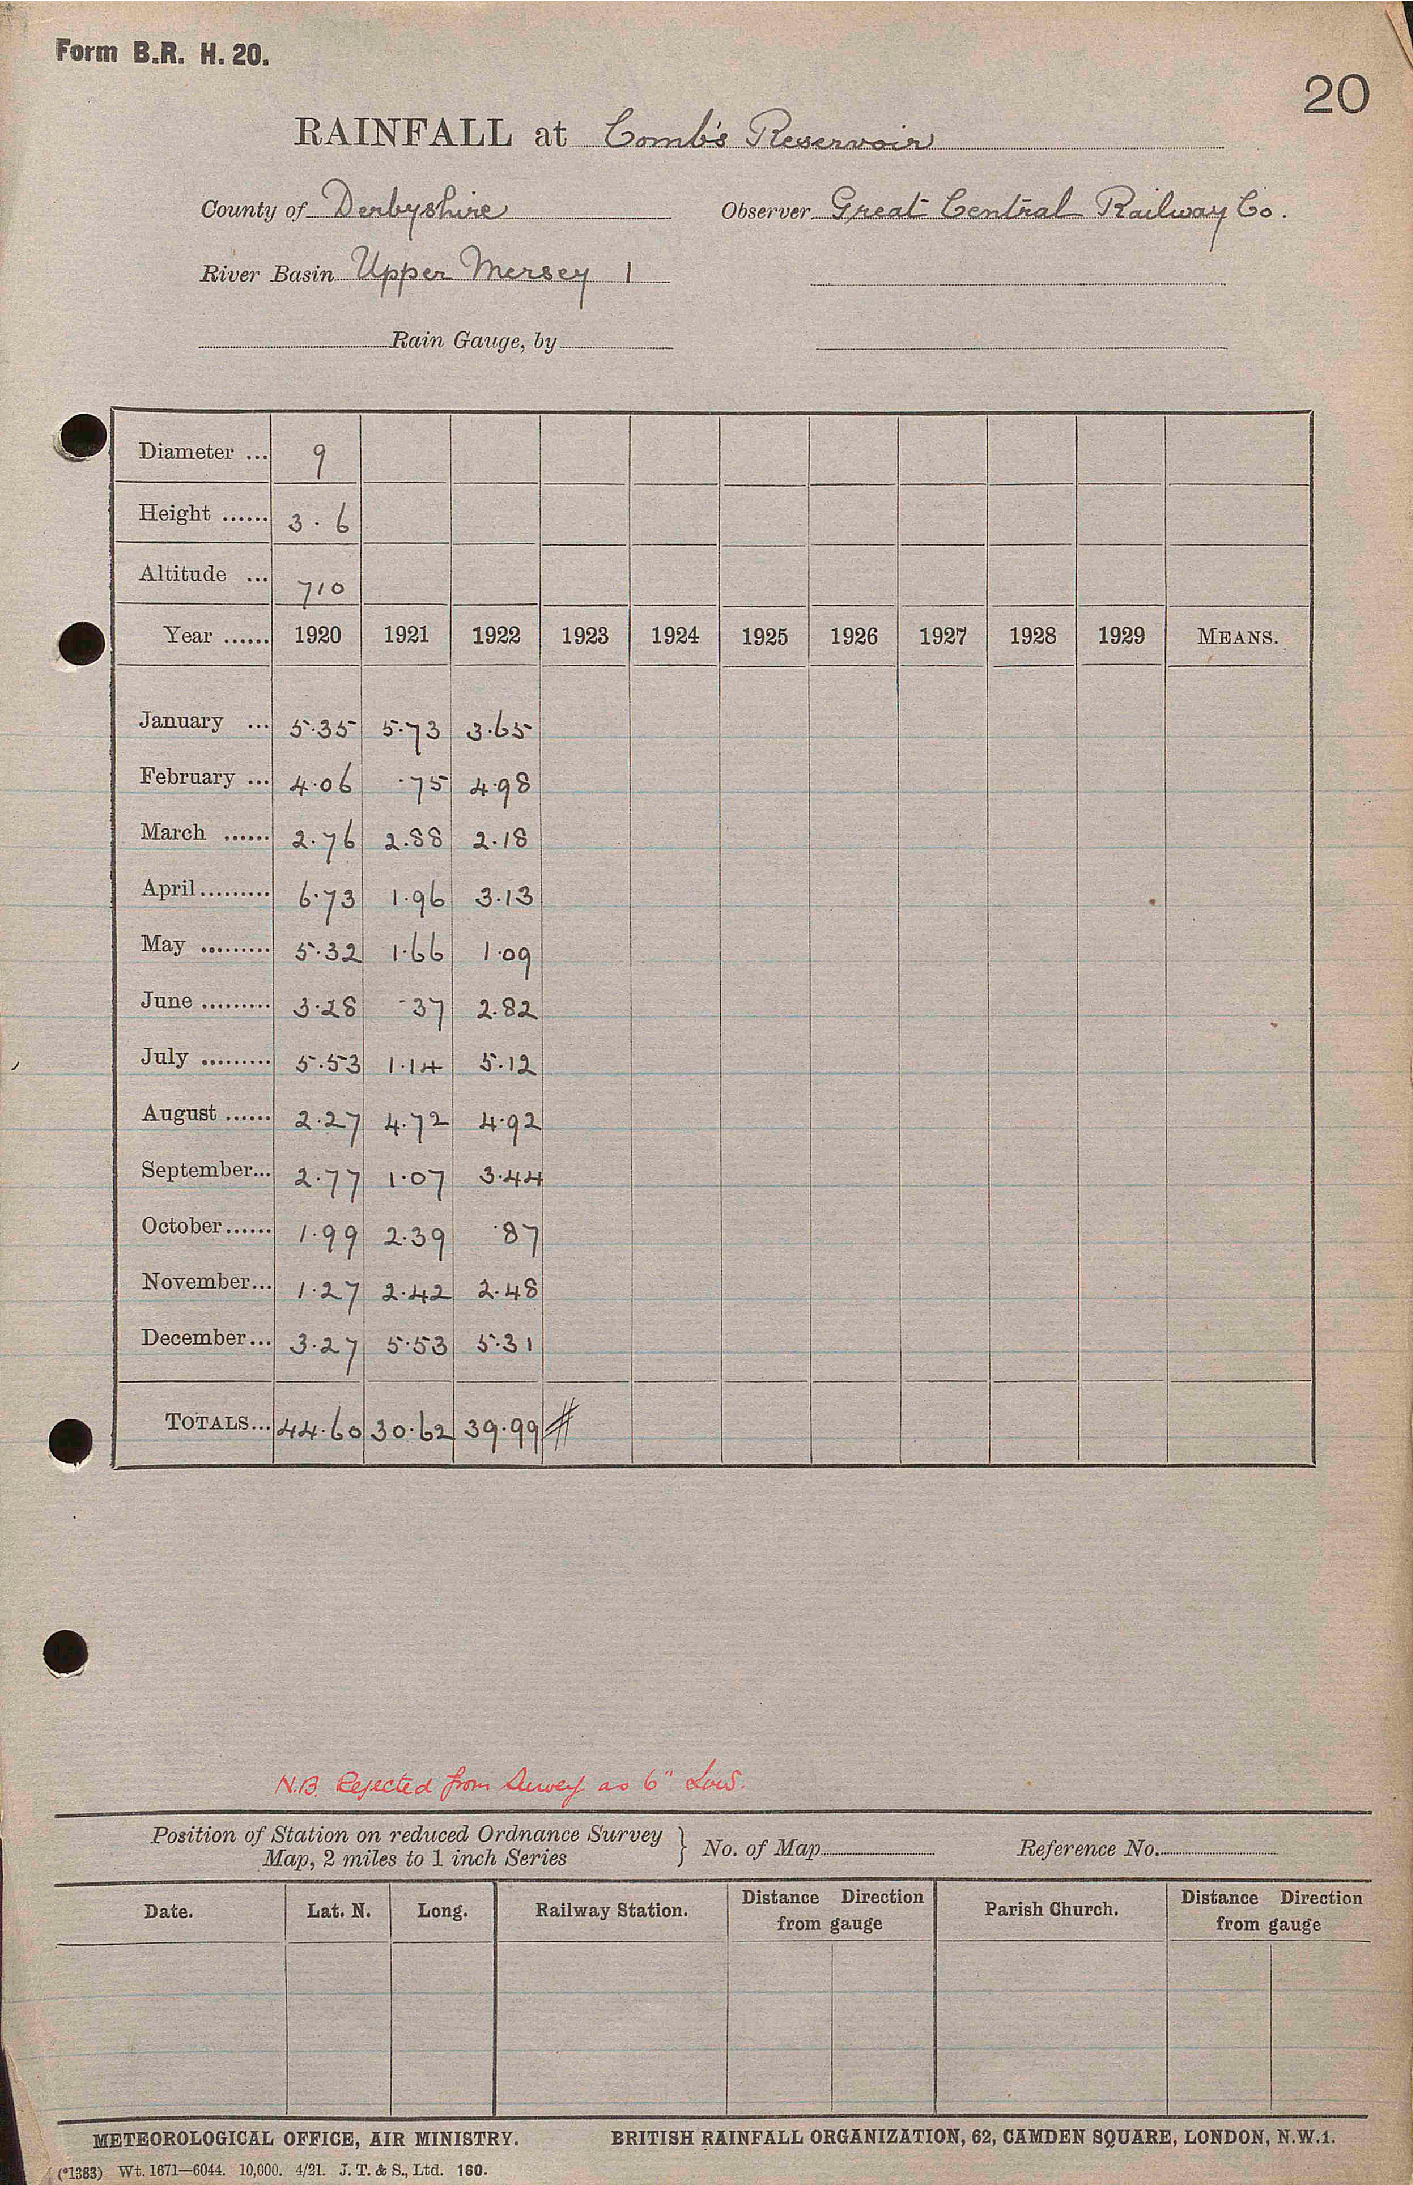 Form B.R. H. 20.
20
RAINFALL at Comb's Reservoir
County of Derbyshire Observer Great Central Railway Co.
River Basin Upper Mersey 1
Rain Gauge, by
Diameter ... 9
Height ...... 3.6
Altitude ... 710
Year ...... 1920 1921 1922 1923 1924 1925 1926 1927 1928 1929 MEANS.
January ... 5.35 5.73 3.65
February ... 4.06 .75 4.98
March ...... 2.76 2.88 2.18
April ......... 6.73 1.96 3.13
May ......... 5.32 1.66 1.09
June ......... 3.28 .37 2.82
July ......... 5.53 1.14 5.12
August ...... 2.27 4.72 4.92
September... 2.77 1.07 3.44
October...... 1.99 2.39 .87
November... 1.27 2.42 2.48
December... 3.27 5.53 5.31
TOTALS... 44.60 30.62 39.99 #
N.B. Rejected from Survey as 6" Low.
Position of Station on reduced Ordnance Survey
Map, 2 miles to 1 inch Series } No. of Map Reference No.
Date. Lat. N. Long. Railway Station. Distance Direction from gauge Parish Church. Distance Direction from gauge
METEOROLOGICAL OFFICE, AIR MINISTRY. BRITISH RAINFALL ORGANIZATION, 62, CAMDEN SQUARE, LONDON, N.W.1.
(*1383) Wt. 1671—6044. 10,000. 4/21. J. T. & S., Ltd. 160.